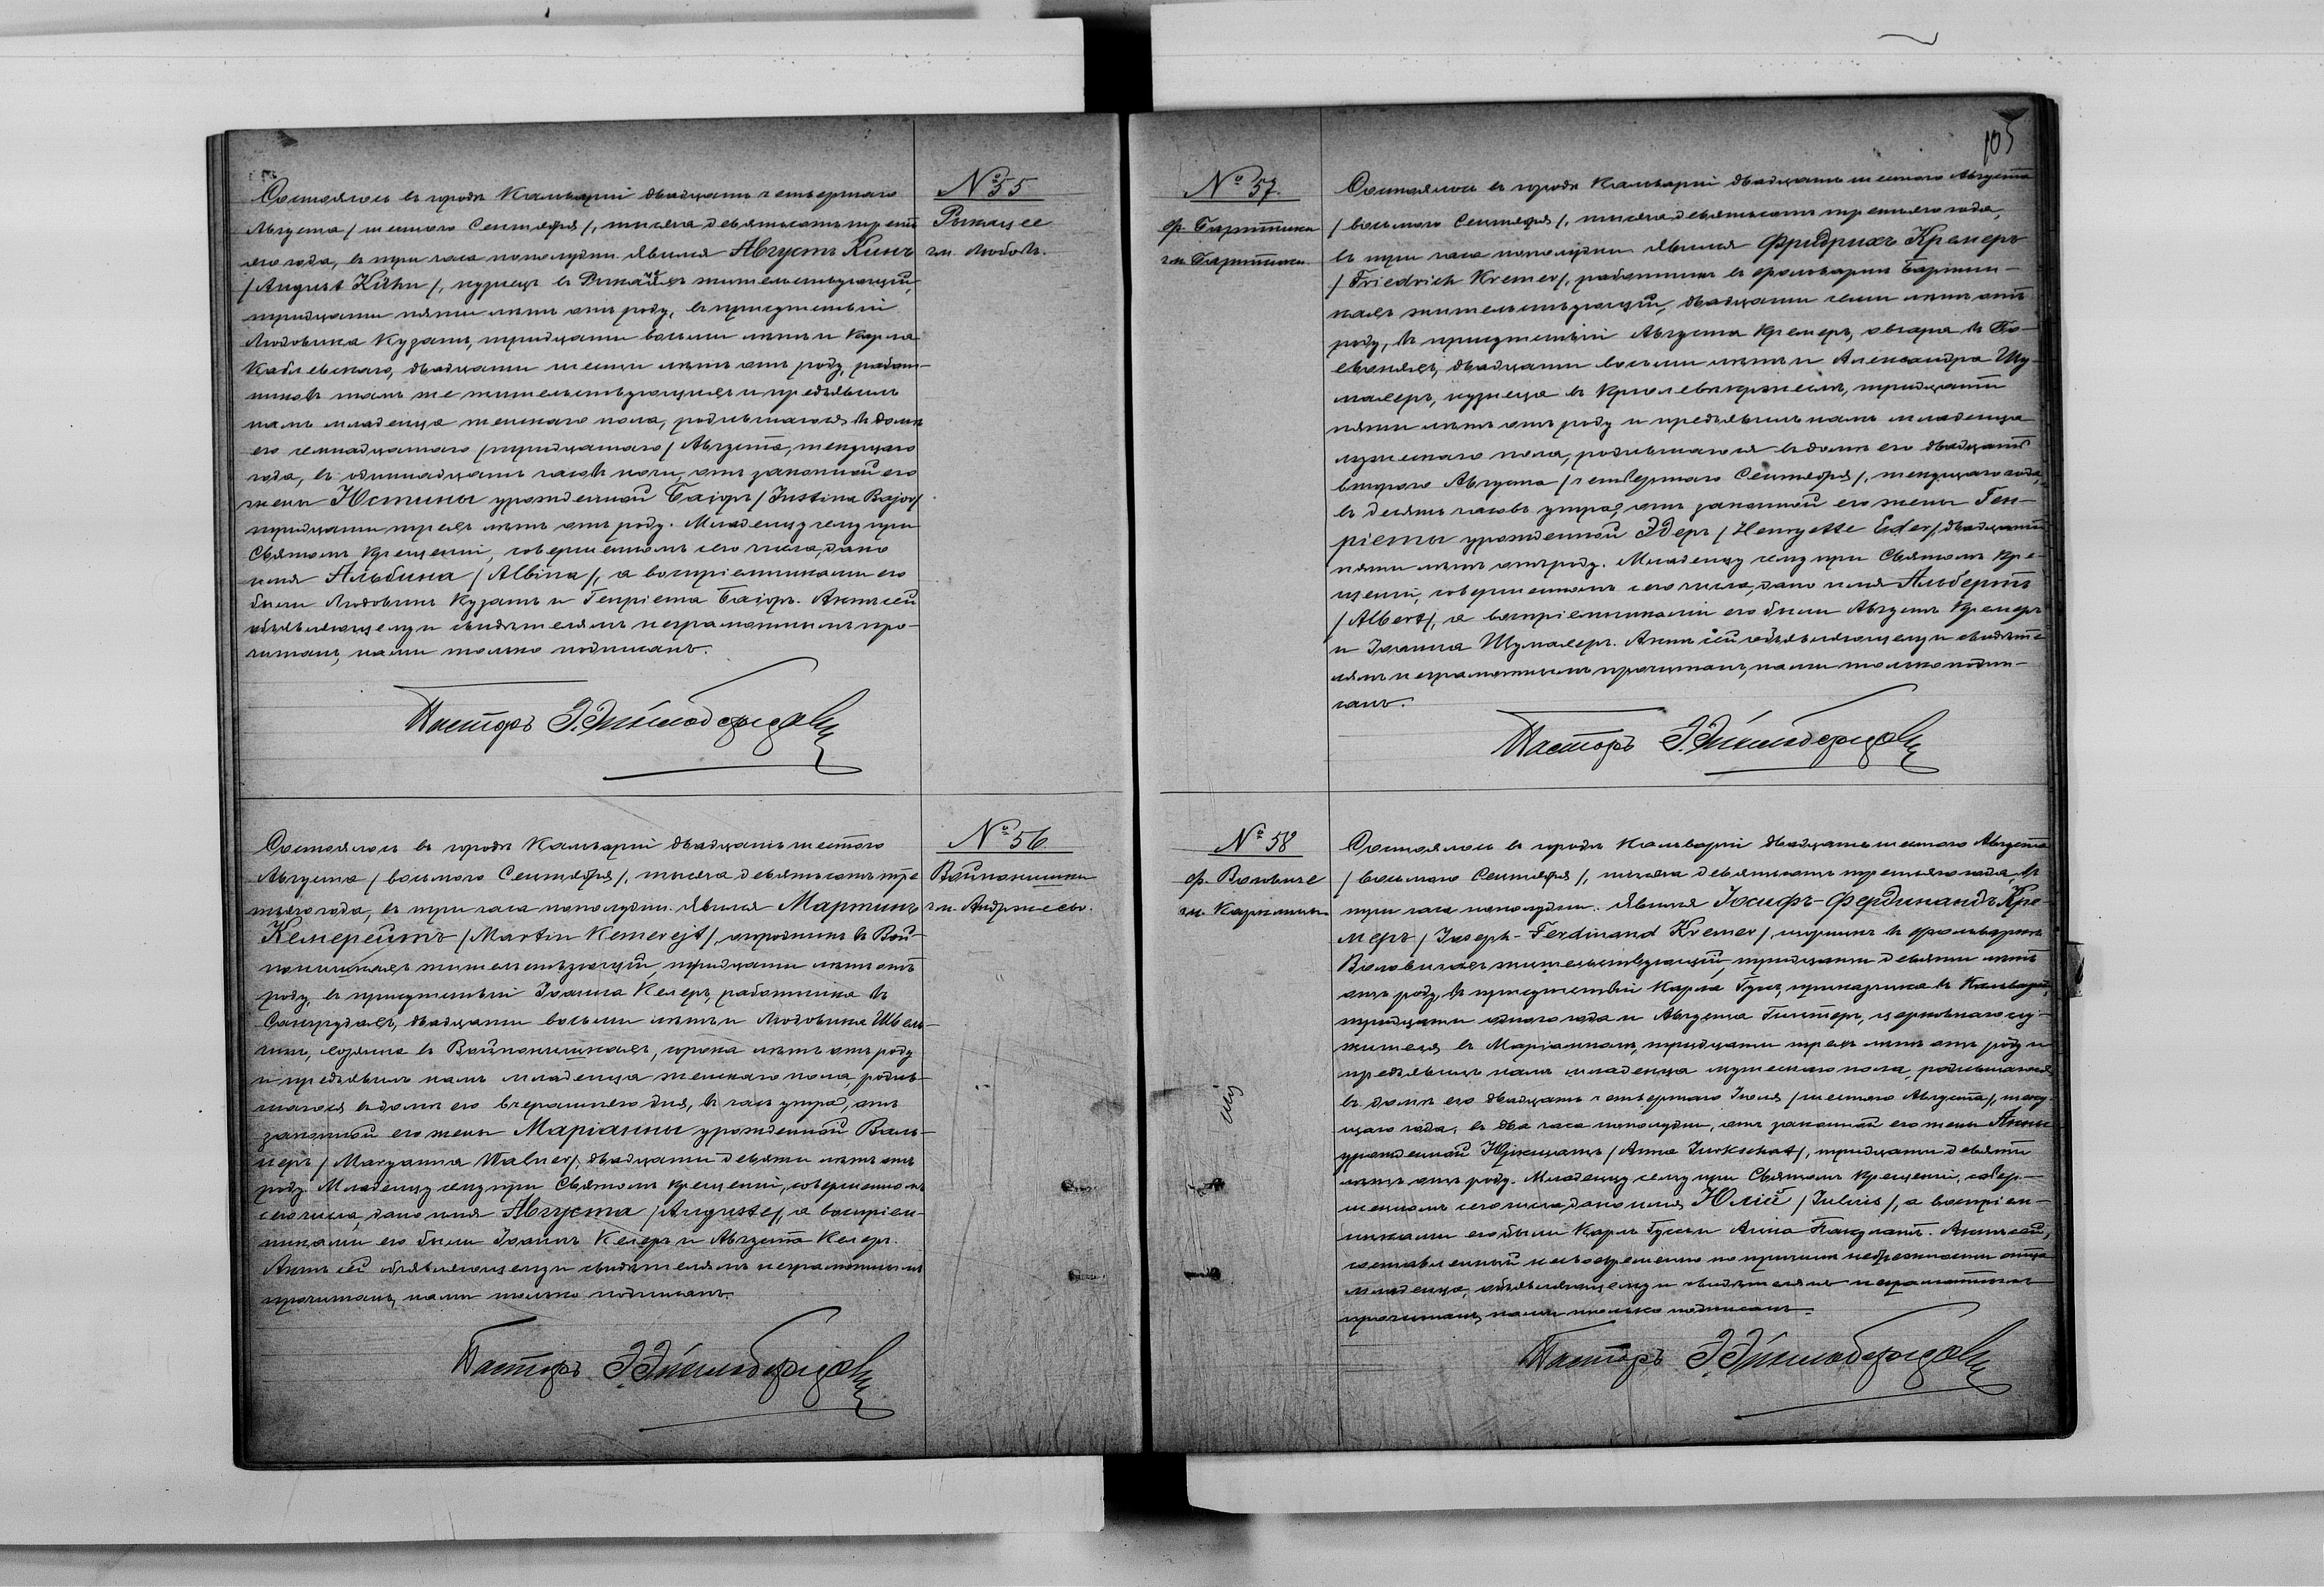 Состоялось въ городѣ Кальваріи двадцать четвертаго
Августа /шестого Сентября/, тысяча девятьсотъ треть
яго года, въ три часа пополудни. Явился Августъ Кинъ
/August Kühn/, кузнецъ въ жительствующій,
тридцати пяти лѣтъ отъ роду, въ присутствіи
Людовика Кузатъ, тридцати восьми лѣтъ и Карла
двадцати шести лѣтъ отъ роду, работ-
никовъ тамъ же жительствующихъ и предъявилъ
намъ младенца женскаго пола, родившагося въ домѣ
его семнадцатого /тридцатаго/ Августа, текущаго
года, въ одиннадцать часовъ ночи, отъ законной его
жены Юстины урожденной Баіоръ /Justina Bajor/
тридцати трехъ лѣтъ отъ роду. Младенцу сему при
Святомъ Крещеніи, совершенномъ сего числа, дано
имя Альбина /Albina/, а воспріемниками его
были Людовикъ Кузатъ и Генріета Баіоръ. Актъ сей
объявляющему и свидѣтелямъ неграмотнымъ про-
читанъ, нами только подписанъ.
Пасторъ
№ 55
гм. Любовъ.
Состоялось въ городѣ Кальваріи двадцать шестого
Августа /восьмого Сентября/, тысяча девятьсотъ тре
тьяго года, въ три часа пополудни. Явился Мартинъ
Кемерейтъ /Martin Kemerejt/, огородникъ въ Вой-
жительствующій, тридцати лѣтъ отъ
роду, въ присутствіи Іоанна Келеръ, работника въ
двадцати восьми лѣтъ и Людовика
хозяина въ сорока лѣтъ отъ роду
и предъявилъ намъ младенца женскаго пола, родив-
шагося въ домѣ его вчерашняго дня, въ часъ утра, отъ
законной его жены Маріанны урожденной Валь-
неръ /Maryanna Walner/, двадцати девяти лѣтъ отъ
роду. Младенцу сему при Святомъ Крещеніи, совершенномъ
сего числа, дано имя Августа /Auguste/, а воспріем-
никами его были Іоаннъ Келеръ и Августа Келеръ.
Актъ сей объявляющему и свидѣтелямъ неграмотнымъ
прочитанъ, нами только подписанъ.
Пасторъ
№ 56
гм. Андржеево.
105
№ 57.
Состоялось въ городѣ Кальваріи двадцать шестого Августа
/восьмого Сентября/, тысяча девятьсотъ третьяго года,
въ три часа пополудни. Явился Фридрихъ Кремеръ
/Friedrich Kremer/, работникъ въ фольваркѣ
жительствующій, двадцати семи лѣтъ отъ
роду, въ присутствіи Августа Кремеръ, овчара въ
двадцати восьми лѣтъ и Александра Шу-
махеръ, кузнеца въ тридцати
пяти лѣтъ отъ роду и предъявилъ намъ младенца
мужескаго пола, родившагося въ домѣ его двадцать
второго Августа /четвертаго Сентября/, текущаго года,
въ десять часовъ утра, отъ законной его жены Ген-
ріеты урожденной Эдеръ /Henryette Eder/, двадцати
пяти лѣтъ отъ роду. Младенцу сему при Святомъ Кре-
щеніи, совершенномъ сего числа, дано имя Альбертъ
/Albert/, а воспріемниками его были Августъ Кремеръ
и Іоанна Шумахеръ. Актъ сей объявляющему и свидѣте
лямъ неграмотнымъ прочитанъ, нами только подпи-
санъ.
Пасторъ
№ 58
Состоялось въ городѣ Кальваріи двадцать шестого Августа
/восьмого Сентября/, тысяча девятьсотъ третьяго года, въ
три часа пополудни. Явился Іосифъ-Фердинандъ Кре-
меръ /Joseph-Ferdinand Kremer/, въ фольваркѣ
жительствующій, тридцати девяти лѣтъ
отъ роду, въ присутствіи Карла приказчика въ Кальваріи,
тридцати одного года и Августа церковнаго слу-
жителя въ Маріамполѣ, тридцати трехъ лѣтъ отъ роду и
предъявилъ намъ младенца мужескаго пола, родившагося
въ домѣ его двадцать четвертаго Іюля /шестого Августа/, теку-
щаго года, въ два часа пополудни, отъ законной его жены Анны
урожденной Юркшатъ /Anna Jurkschat/, тридцати девяти
лѣтъ отъ роду. Младенцу сему при Святомъ Крещеніи, совер-
шенномъ сего числа, дано имя Юлій /Julius/, а воспріем-
никами его были Карлъ и Анна Актъ сей,
составленный несвоевременно по причинѣ небрежности отца
младенца, объявляющему и свидѣтелямъ неграмотнымъ
прочитанъ, нами только подписанъ.
Пасторъ